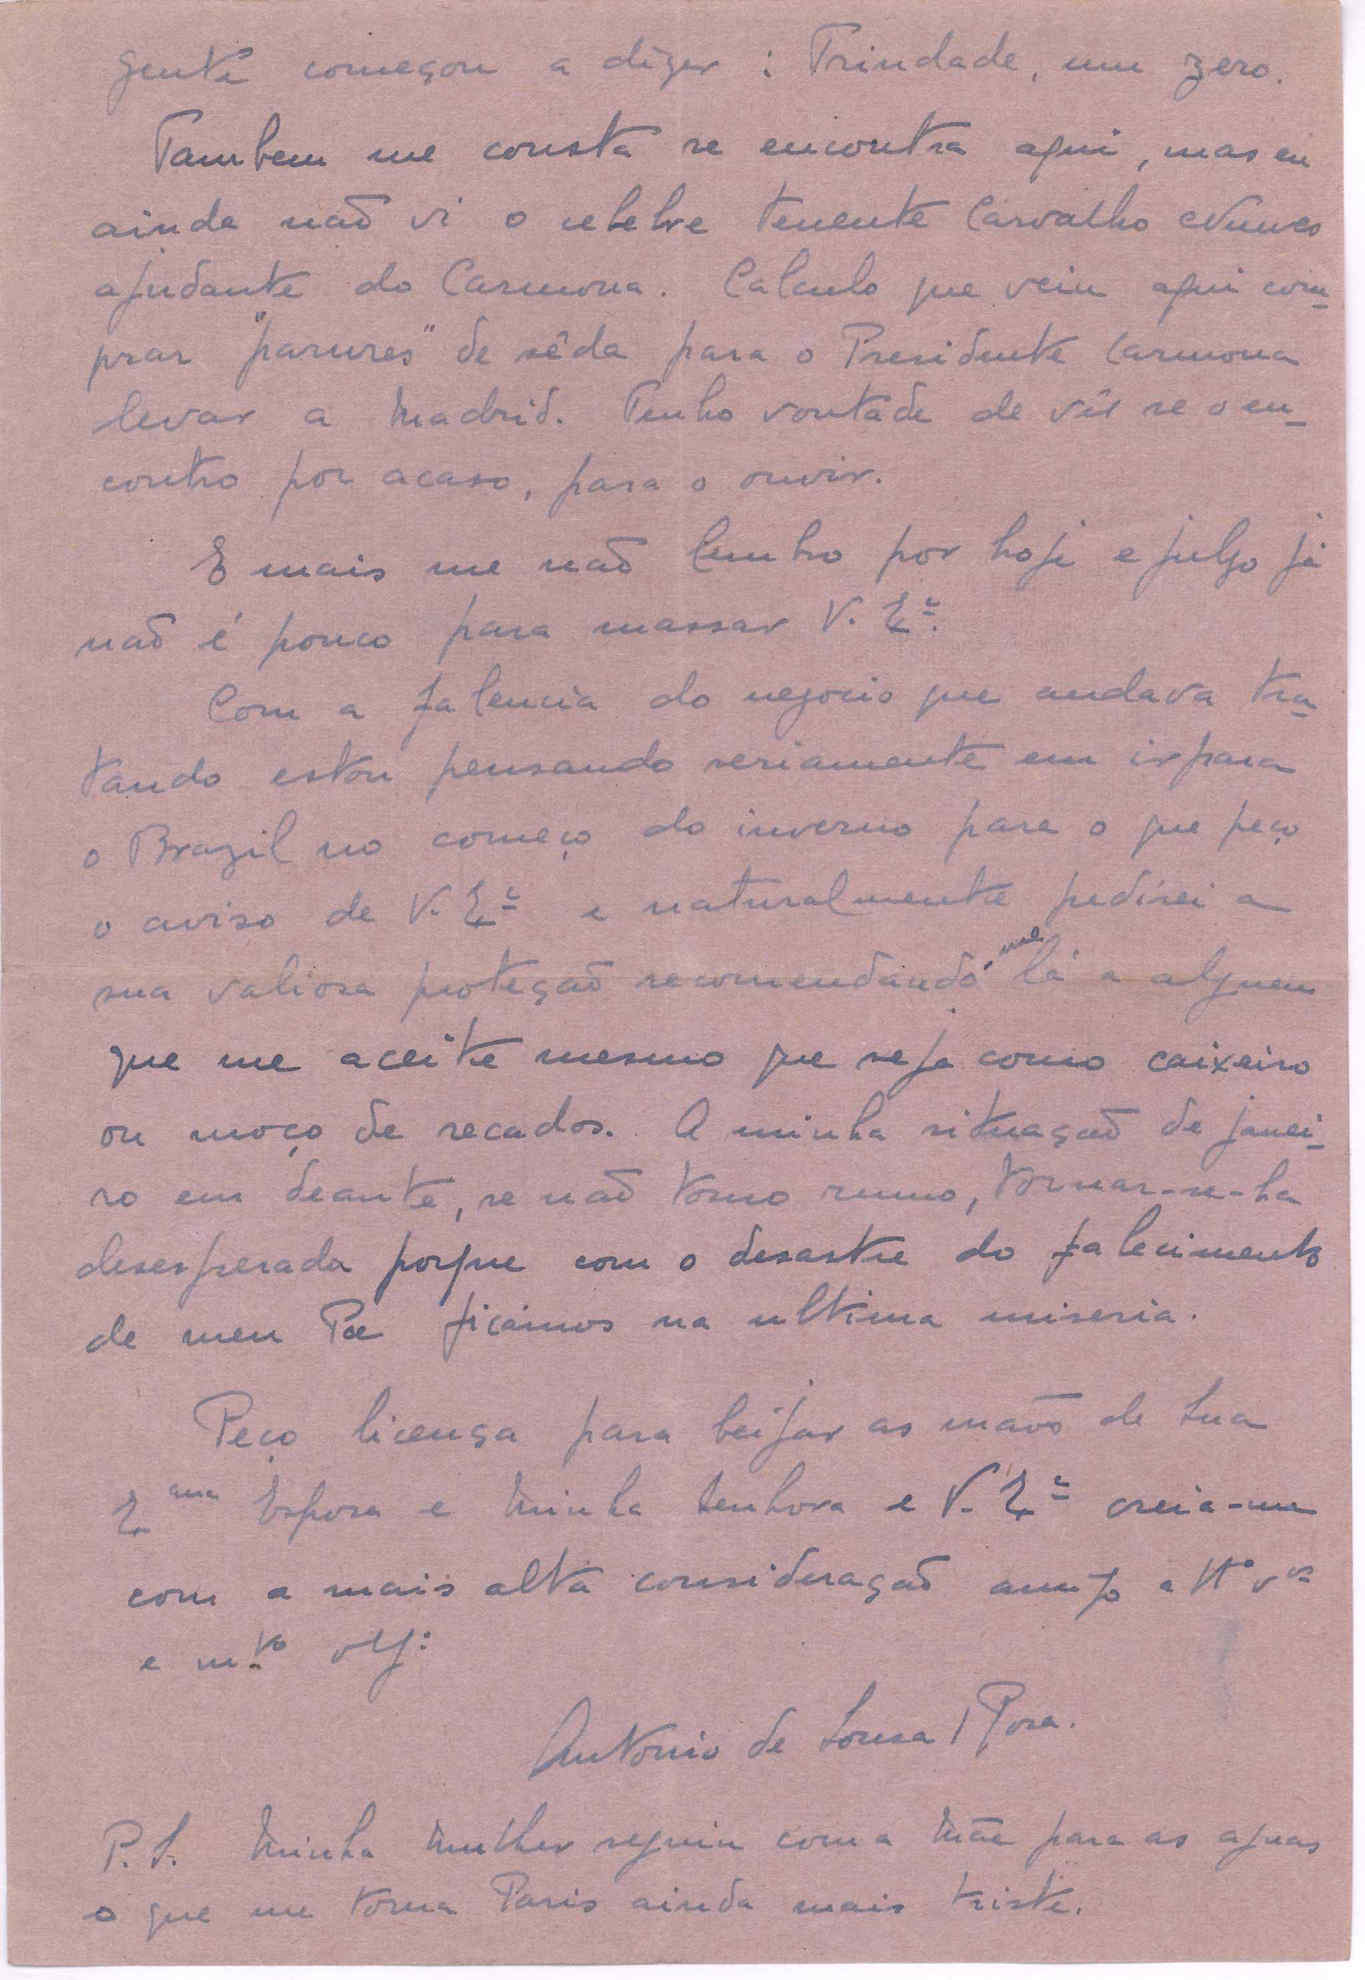 gente começou a dizer : Trindade, um zero.
Tambem me consta se encontra aqui, mas eu
ainda não vi o celebre tenente Carvalho Nunes
ajudante do Carmona. Calculo que veiu aqui com-
prar "parures" de sêda para o Presidente Carmona
levar a Madrid. Tenho vontade de vêr se o en-
contro por acaso, para o ouvir.
E mais me não lembro por hoje e julgo já
não é pouco para massar V. Exª.
Com a falencia do negocio que andava tra-
tando estou pensando seriamente em ir para
o Brazil no começo do inverno para o que peço
o aviso de V. Exª e naturalmente pedirei a
sua valiosa proteção recomendando-me lá a alguem
que me aceite mesmo que seja como caixeiro
ou moço de recados. A minha situação de janei-
ro em deante, se não tomo rumo, tornar-se-ha
desesperada porque com o desastre do falecimento
de meu Pae ficámos na ultima miseria.
Peço licença para beijar as mãos de Sua
Exma Esposa e Minha Senhora e V. Exª creia-me
com a mais alta consideração amigo e
e mto
Antonio de Sousa Rosa.
P.S. Minha Mulher seguiu com a Mãe para as aguas
o que me torna Paris ainda mais triste.